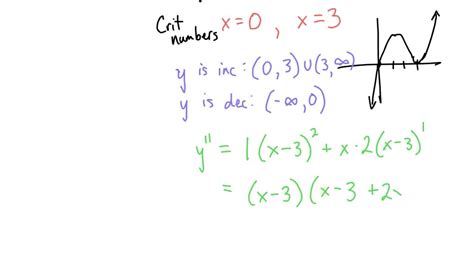 Crit numbers x=0 , x=3
y is inc: (0,3)∪(3,∞)
y is dec: (-∞,0)
y'' = 1(x-3)² + x·2(x-3)¹
= (x-3)(x-3 +2